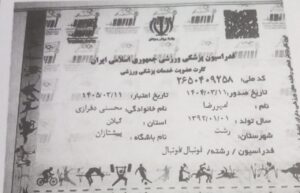 فدراسیون پزشکی ورزشی جمهوری اسلامی ایران
کارت عضویت خدمات پزشکی ورزشی
کد ملی: ۲۶۵۰۴۰۹۲۵۸
تاریخ صدور: ۱۴۰۴/۰۳/۱۱ تاریخ اعتبار: ۱۴۰۵/۰۳/۱۱
نام: امیررضا نام خانوادگی: محسنی دفرازی
سال تولد: ۱۳۹۲/۰۱/۰۱ استان: گیلان
شهرستان: رشت نام باشگاه: پیشتازان
فدراسیون / رشته: فوتبال/فوتبال